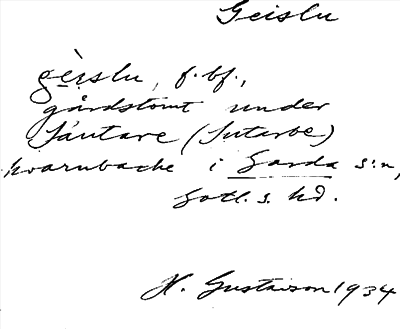 Geislu
gèislu, f. bf.,
gårdstomt under
Sautare (Sutarbe)
kvarnbacke i Garda s:n,
Gotl. s. hd.
H. Gustavson 1934